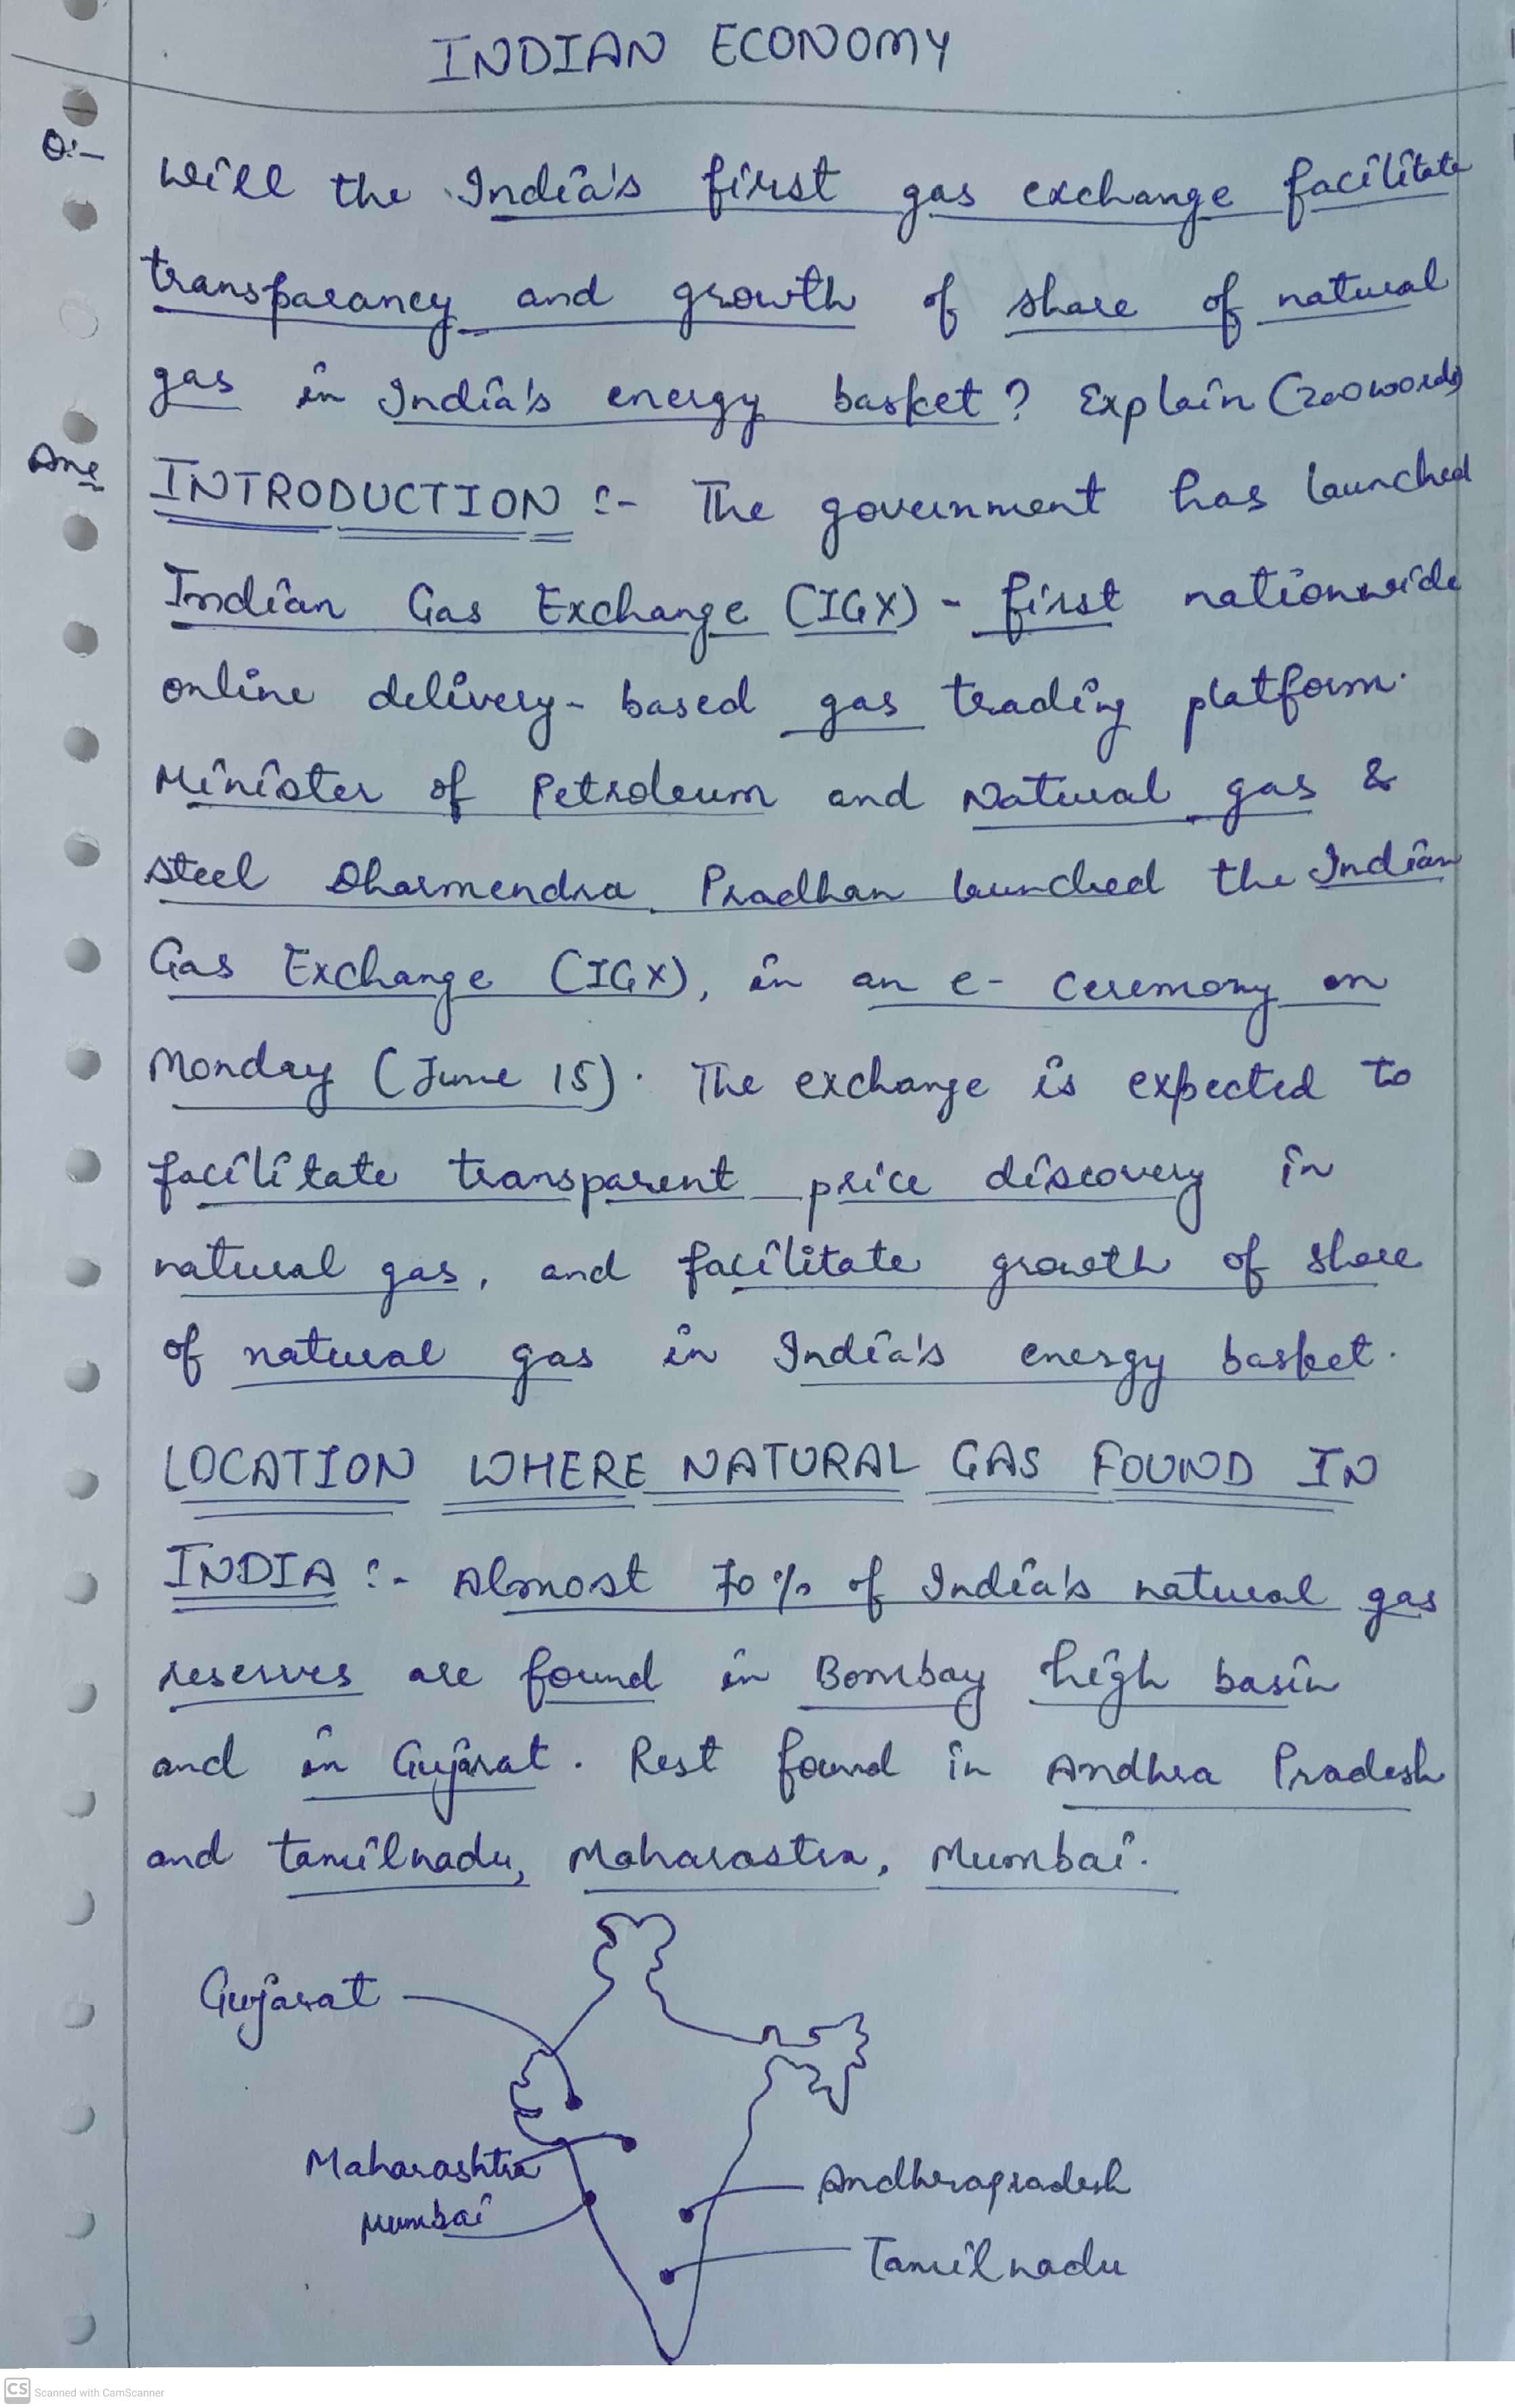 INDIAN ECONOMY
Q:-
Will the India's first gas exchange facilitate
transparancy and growth of share of natural
gas in India's energy basket? Explain (200 words)
Ans
INTRODUCTION :- The government has launched
Indian Gas Exchange (IGX) - first nationwide
online delivery-based gas trading platform.
Minister of Petroleum and Natural gas &
steel Dharmendra Pradhan launched the Indian
Gas Exchange (IGX), in an e- ceremony on
Monday (June 15). The exchange is expected to
facilitate transparent price discovery in
natural gas, and facilitate growth of share
of natural gas in India's energy basket.
LOCATION WHERE NATURAL GAS FOUND IN
INDIA :- Almost 70% of India's natural gas
reserves are found in Bombay high basin
and in Gujarat. Rest found in Andhra Pradesh
and tamilnadu, Maharastra, Mumbai.
Gujarat
Maharashtra
Mumbai
Andhrapradesh
Tamilnadu
CS Scanned with CamScanner